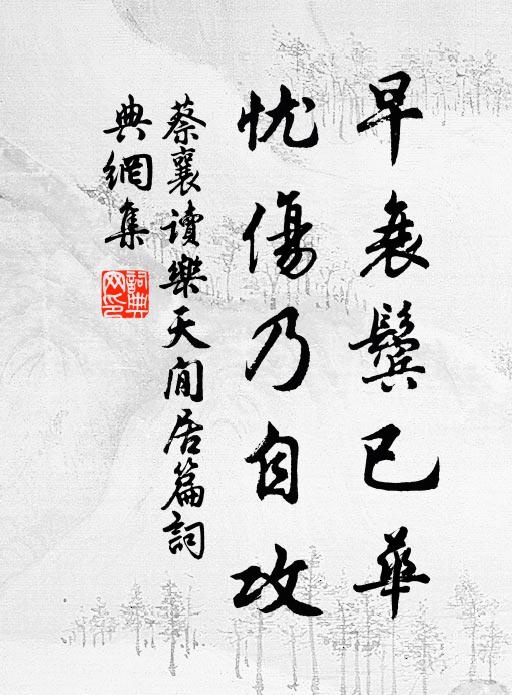 早衰鬓已華
忧傷乃自攻
蔡襄讀樂天閒居篇詞
典網集
詞典网印